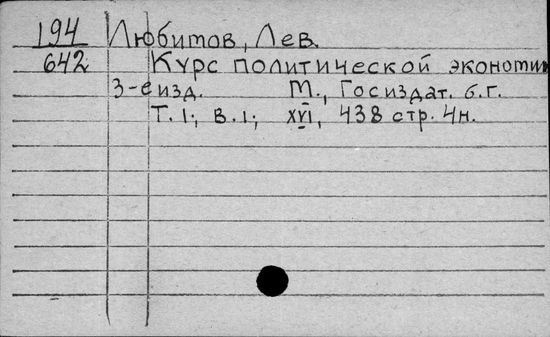 194 Любитов, Лев.
642 Курс политической экономи
3-е изд. М., Госиздат. б.г.
Т. 1; в. 1; XVI, 438 стр. 4н.